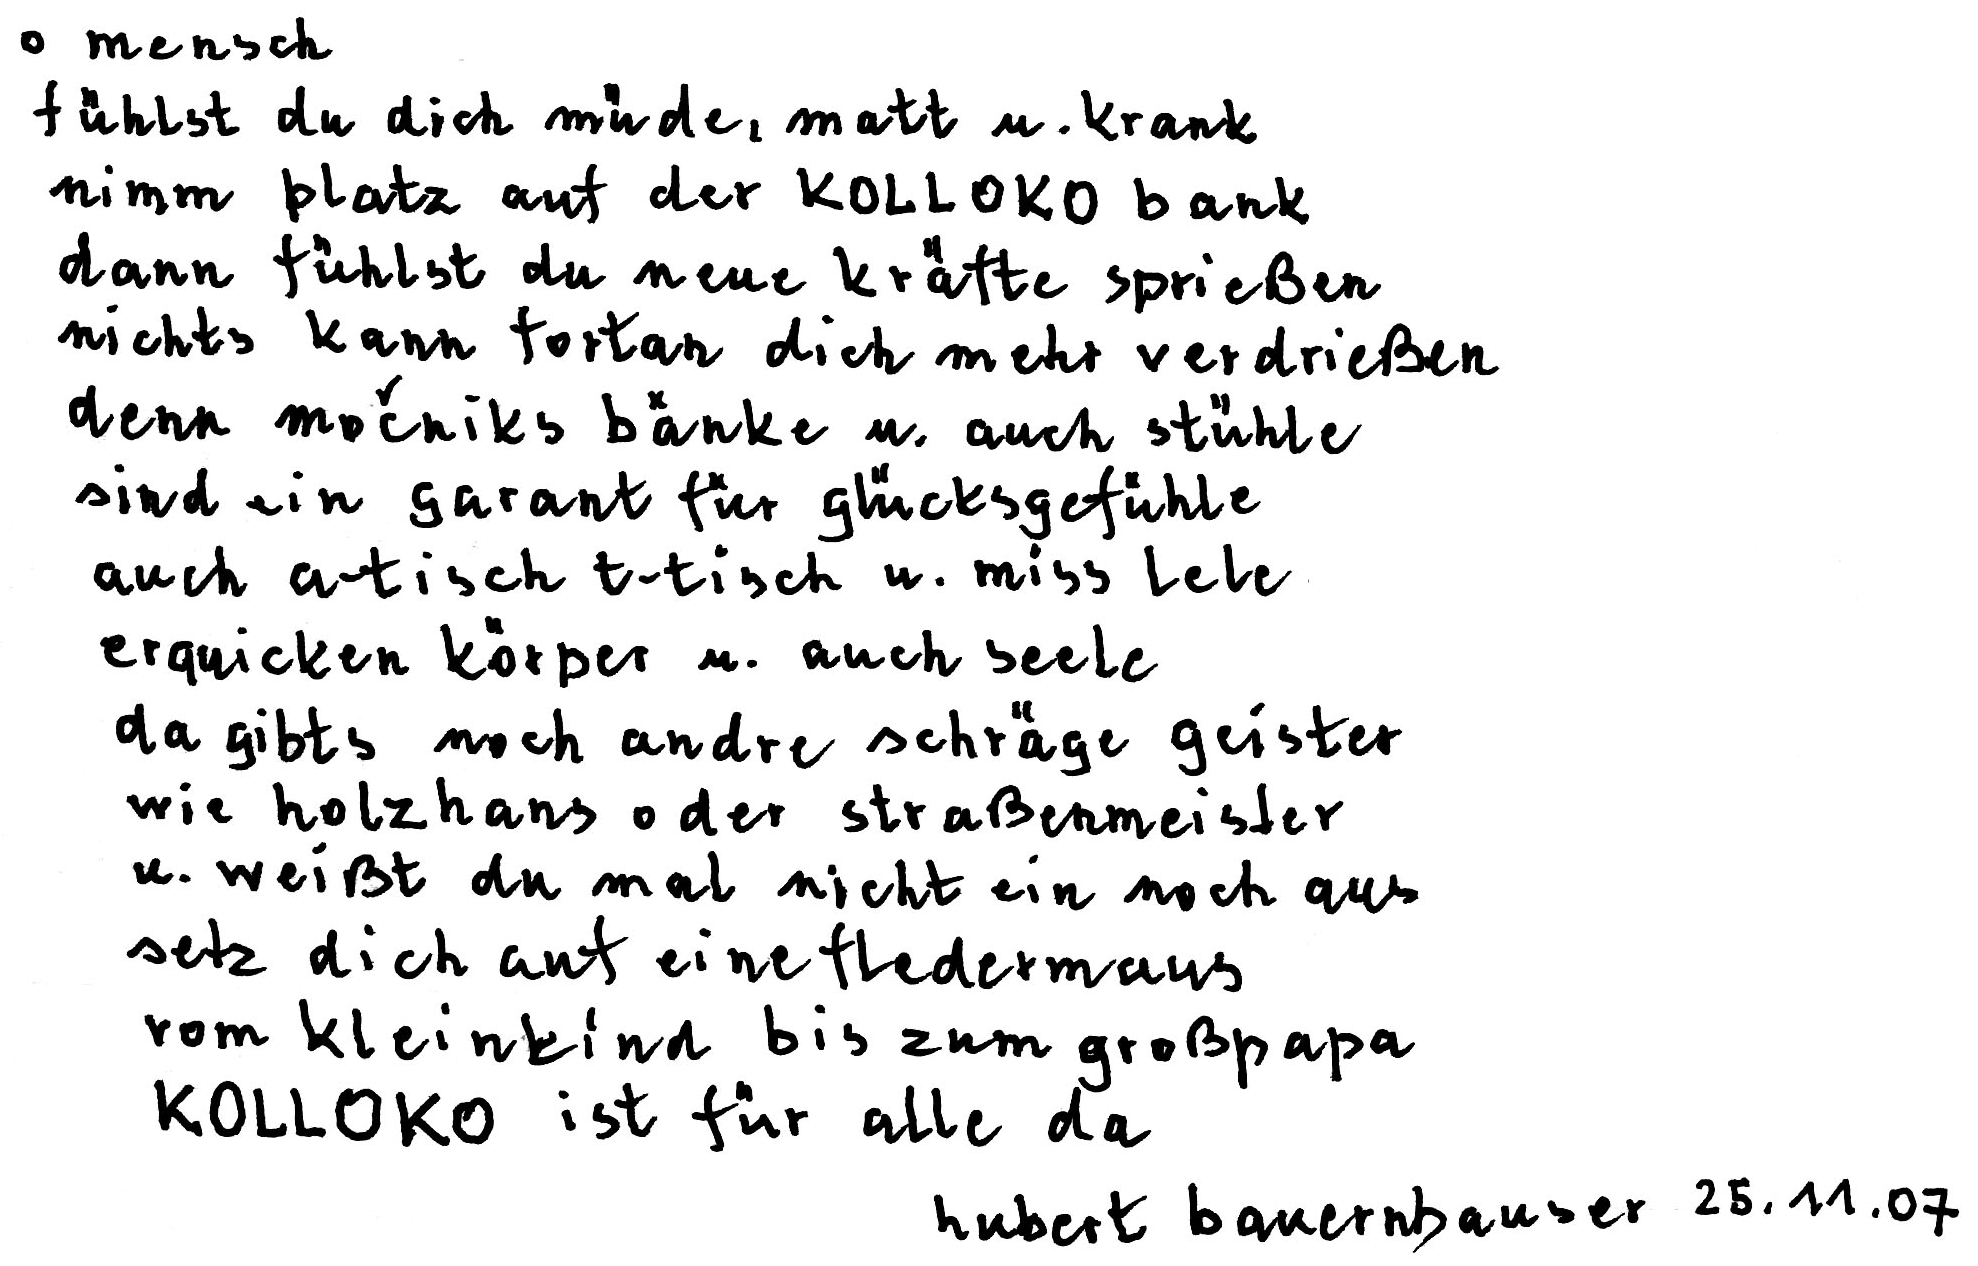 o mensch
fühlst du dich müde, matt u. krank
nimm platz auf der KOLLOKO bank
dann fühlst du neue kräfte sprießen
nichts kann fortan dich mehr verdrießen
denn močniks bänke u. auch stühle
sind ein garant für glücksgefühle
auch a-tisch t-tisch u. miss lele
erquicken körper u. auch seele
da gibts noch andre schräge geister
wie holzhans oder straßenmeister
u. weißt du mal nicht ein noch aus
setz dich auf eine fledermaus
vom kleinkind bis zum großpapa
KOLLOKO ist für alle da
hubert bauernhauser 25.11.07